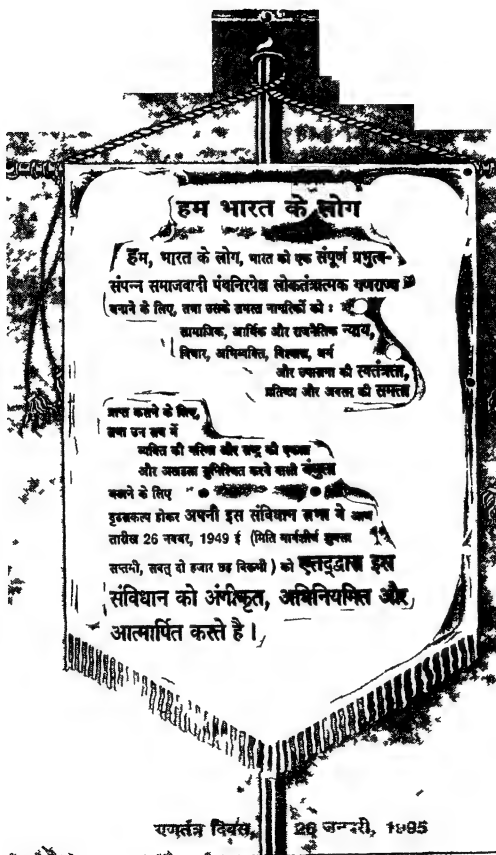 हम भारत के लोग
हम, भारत के लोग, भारत को एक संपूर्ण प्रभुत्व-
संपन्न समाजवादी पंथनिरपेक्ष लोकतंत्रात्मक गणराज्य
बनाने के लिए, तथा उसके समस्त नागरिकों को :
सामाजिक, आर्थिक और राजनैतिक न्याय,
विचार, अभिव्यक्ति, विश्वास, धर्म
और उपासना की स्वतंत्रता,
प्रतिष्ठा और अवसर की समता
प्राप्त कराने के लिए,
तथा उन सब में
व्यक्ति की गरिमा और राष्ट्र की एकता
और अखंडता सुनिश्चित करने वाली बंधुता
बढ़ाने के लिए
दृढसकल्प होकर अपनी इस संविधान सभा मे आज
तारीख 26 नवबर, 1949 ई (मिति मार्गशीर्ष शुक्ला
सप्तमी, सवत् दो हजार छह विक्रमी) को एतद्द्वारा इस
संविधान को अंगीकृत, अधिनियमित और
आत्मार्पित करते है।
गणतंत्र दिवस, 26 जनवरी, 1995